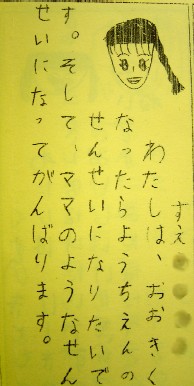 すえ
わたしは、おおきく
なったらようちえんの
せんせいになりたいで
す。そして、ママのようなせん
せいになってがんばります。